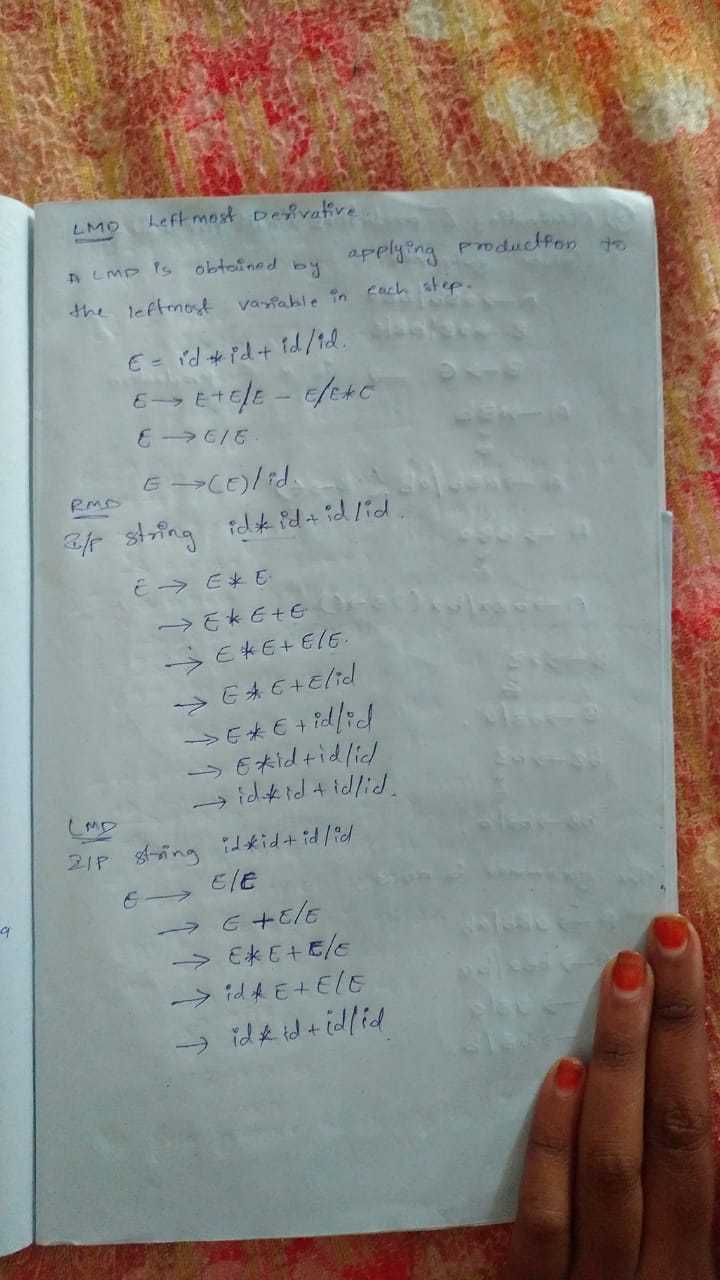 LMD Leftmost Derivative.
A LMD is obtained by applying production to
the leftmost variable in each step.
E = id*id+id/id.
E → E+E/E - E/E*E
E → E/E.
E → (E)/id.
RMD
I/P string id*id+id/id.
E → E*E
→ E*E+E
→ E*E+E/E.
→ E*E+E/id
→ E*E+id/id
→ E*id+id/id
→ id*id+id/id.
LMD
I/P string id*id+id/id
E → E/E
→ E+E/E
→ E*E+E/E
→ id*E+E/E
→ id*id+id/id
9